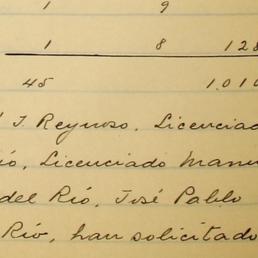 1 9
1 8 128
45 1.010
J. Reynoso, Licenciad
ió, Licenciado Manu
del Río, José Pablo
Río, han solicitado